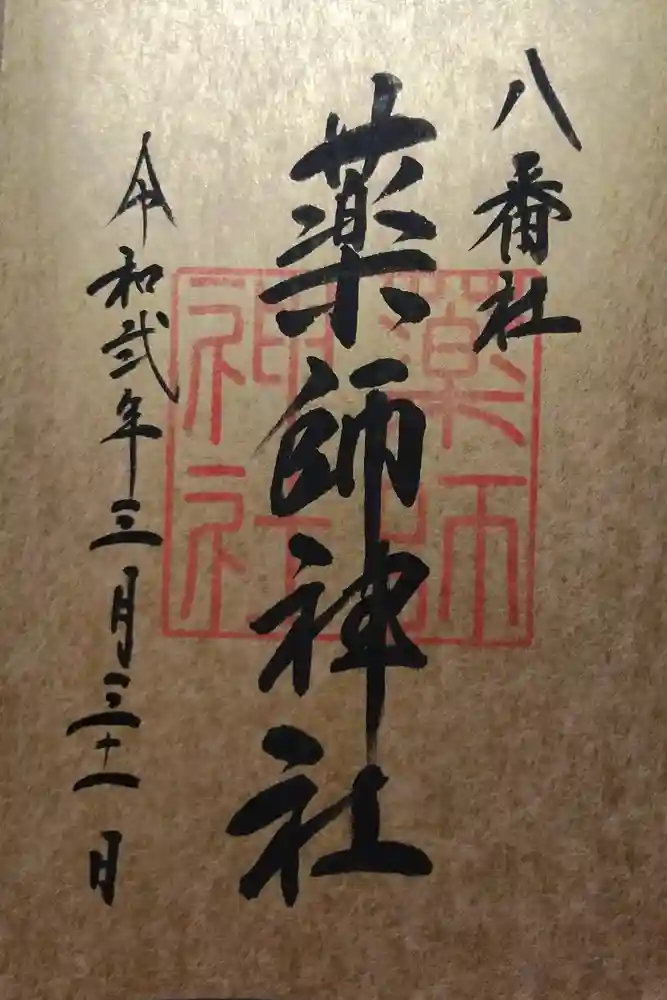 八番社
薬師神社
令和弐年三月三十一日
薬師
神社